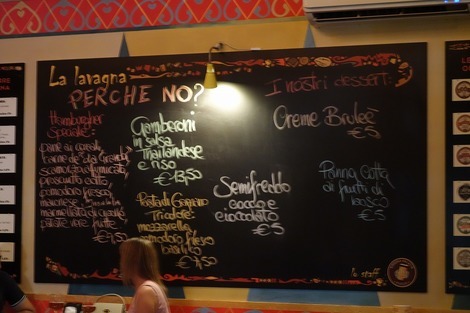 La lavagna
PERCHE NO?
Hamburgher
Speciale:
pane ai cereali
carne de "La Granda"
scamorza fumicata
prosciutto cotto
pomodoro fresco
maionese
marmellata di
patate fritte
Gamberoni
in salsa
thailandese
e riso
€ 13,50
Pasta di Gragnano
Tricolore:
mozzarella
pomodoro fresco
basilico
I nostri dessert:
Creme Bruleè
€5
Semifreddo
cocco e
cioccolato
€5
Panna Cotta
ai frutti di
bosco
€5
lo staff